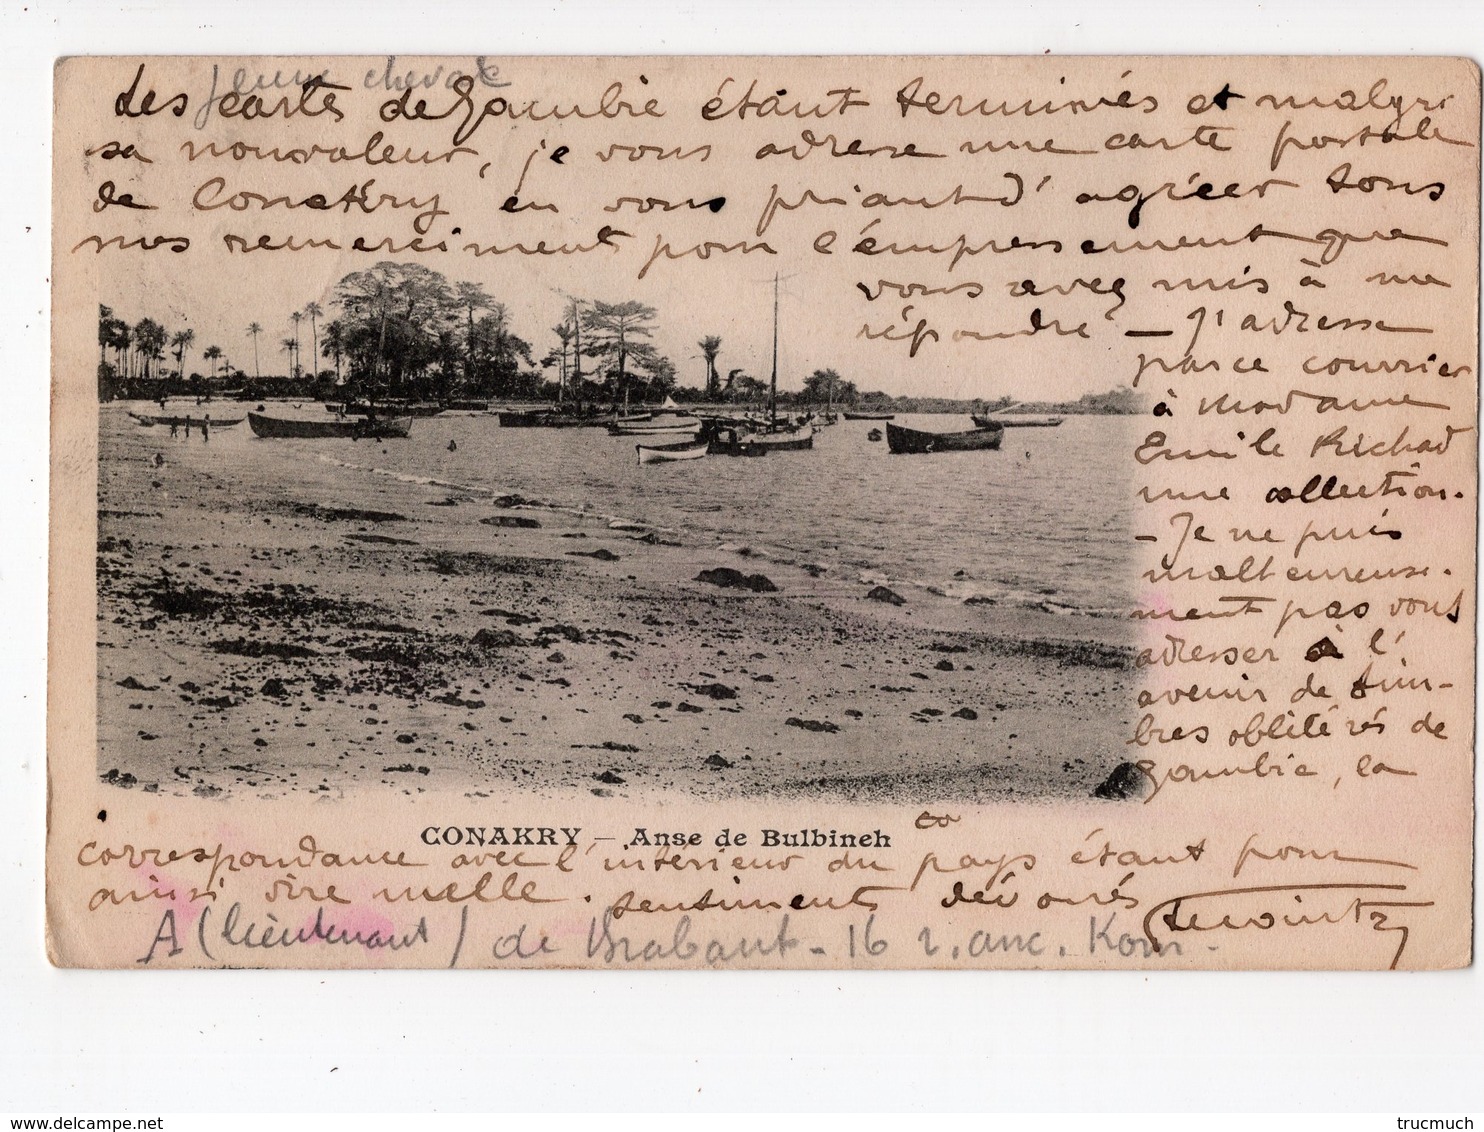 Jeune cheval
Les cartes de Gambie étant terminés et malgré
sa nonvaleur, je vous adresse une carte postale
de Conakry en vous priant d'agréer tous
nos remerciment pour l'empressement que
vous avez mis à me
répondre — J'adresse
par ce courrier
à Madame
Emile Richad
une collection.
— Je ne puis
malheureuse-
ment pas vous
adresser à l'
avenir de tim-
bres oblitérés de
Gambie, la
CONAKRY — Anse de Bulbineh
correspondance avec l'intérieur du pays étant pour
ainsi dire nulle. Sentiments dévoués
A (lieutenant) de Brabant - 16 r. anc. Korn.
trucmuch